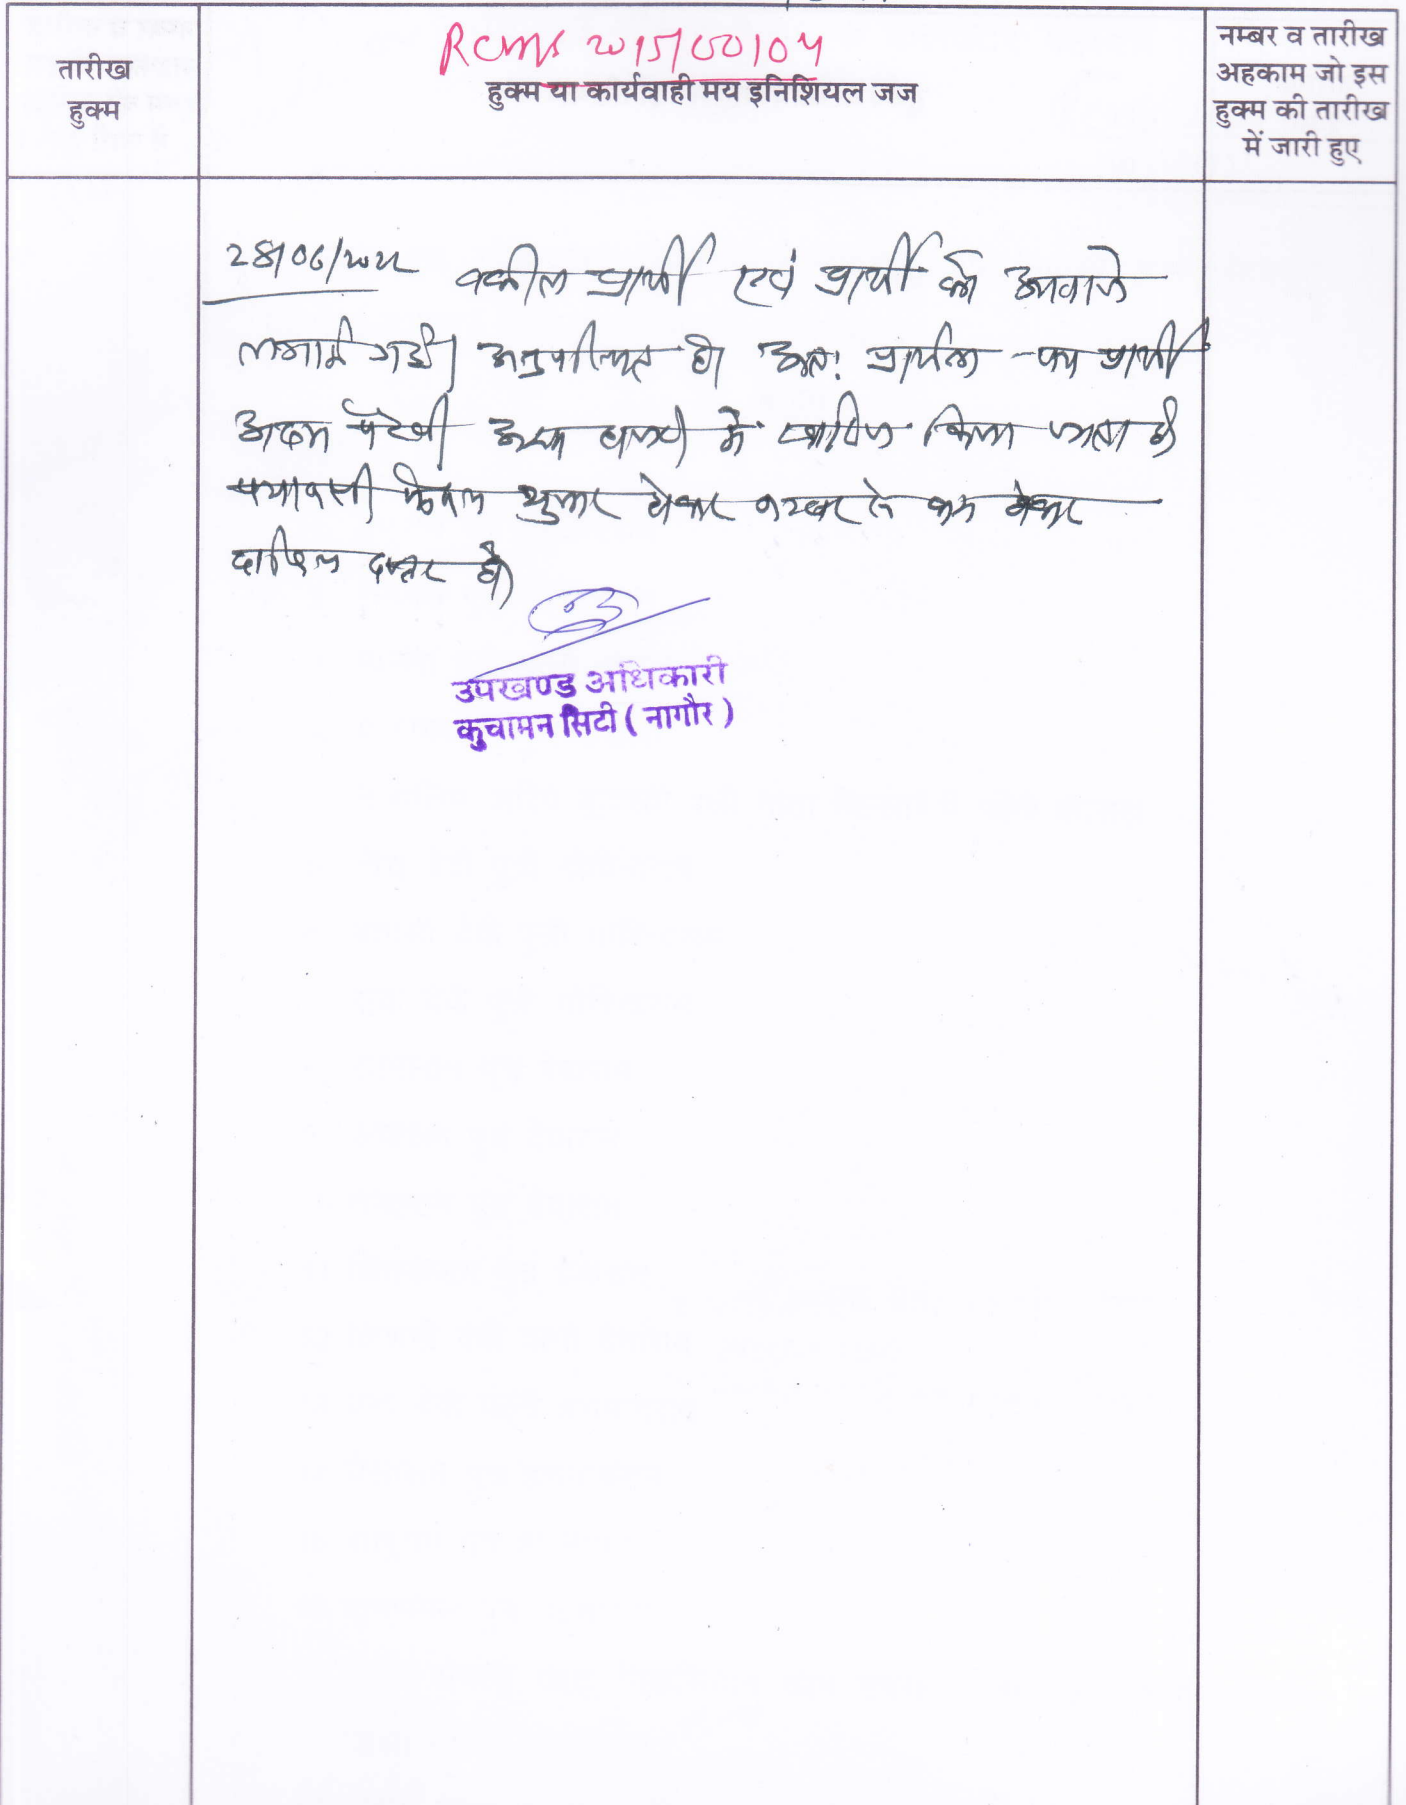 RCMS 2015/00104
तारीख
हुक्म
हुक्म या कार्यवाही मय इनिशियल जज
नम्बर व तारीख
अहकाम जो इस
हुक्म की तारीख
में जारी हुए
28/06/2022 वकील प्रार्थी एवं प्रार्थी को आवाजे
लगाई गई। अनुपस्थित है। अतः प्रार्थना पत्र प्रार्थी
अदम पैरवी अदम हाजरी में खारिज किया जाता है।
पत्रावली फैसल शुमार होकर नम्बर से कम होकर
दाखिल दफ्तर हो।
उपखण्ड अधिकारी
कुचामन सिटी ( नागौर )